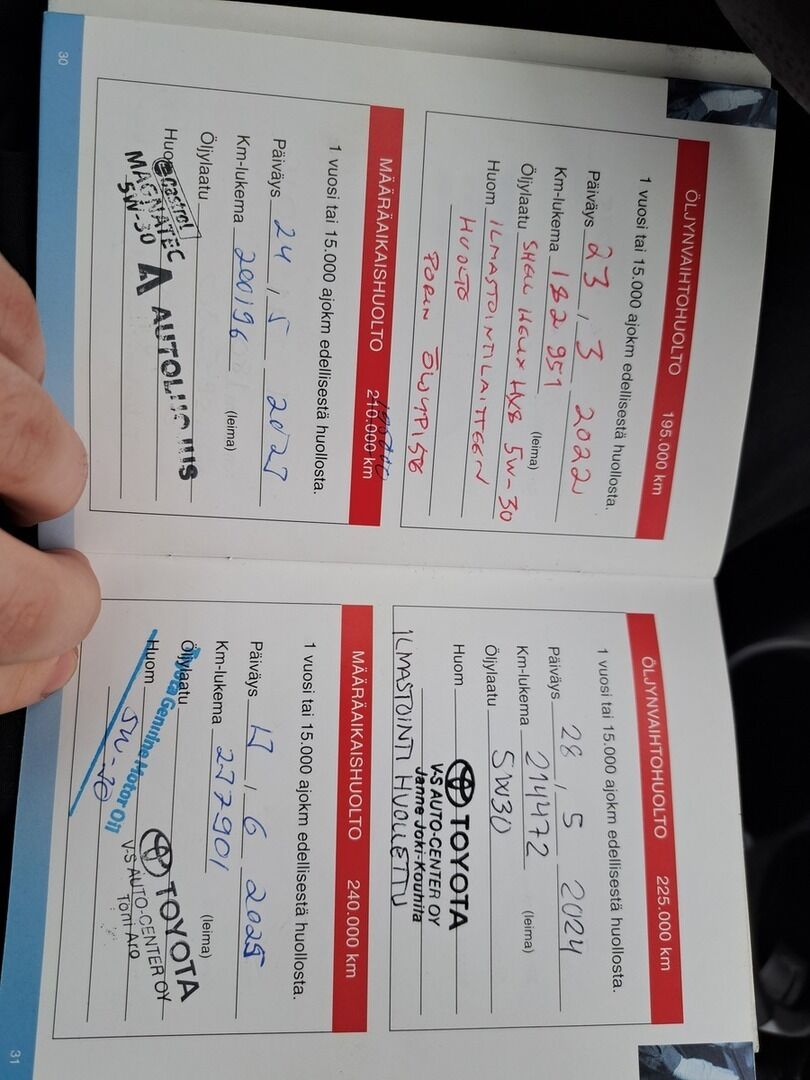 ÖLJYNVAIHTOHUOLTO 195.000 km
1 vuosi tai 15.000 ajokm edellisestä huollosta.
Päiväys 23 / 3 2022
Km-lukema 182 951
(leima)
Öljylaatu SHELL HELIX HX8 5W-30
Huom ILMASTOINTILAITTEEN
HUOLTO
PORIN
MÄÄRÄAIKAISHUOLTO 210.000 km
1 vuosi tai 15.000 ajokm edellisestä huollosta.
Päiväys 24 / 5
Km-lukema 200196
(leima)
Öljylaatu
Huom
Castrol
MAGNATEC
5W-30
30
ÖLJYNVAIHTOHUOLTO 225.000 km
1 vuosi tai 15.000 ajokm edellisestä huollosta.
Päiväys 28 / 5 2024
Km-lukema 214472
(leima)
Öljylaatu 5W30
Huom
TOYOTA
V-S AUTO-CENTER OY
Janne Joki-Kouhila
ILMASTOINTI HUOLLETTU
MÄÄRÄAIKAISHUOLTO 240.000 km
1 vuosi tai 15.000 ajokm edellisestä huollosta.
Päiväys 17 / 6 2025
Km-lukema 227901
(leima)
Öljylaatu
Toyota Genuine Motor Oil
Huom
TOYOTA
V-S AUTO-CENTER OY
Toni Aro
31